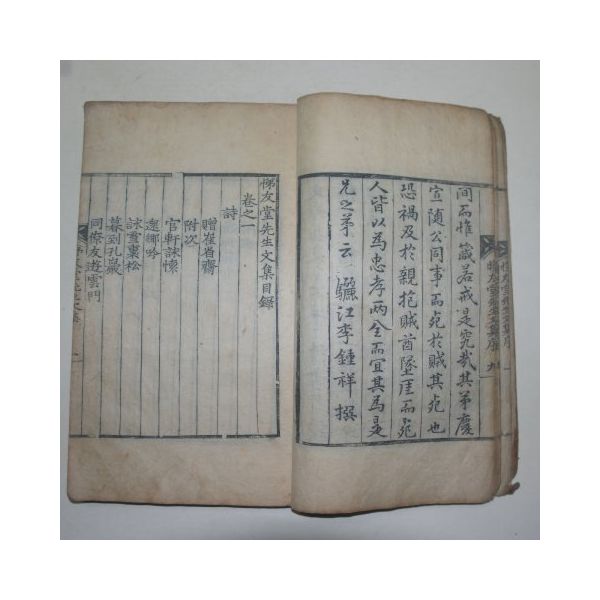 間而惟 箴若戒是究哉其弟慶
宣随公同事而死於賊其死也
恐禍及於親抱賊酋墜崖而死
人皆以為忠孝兩全而宜其為是
兄之弟云 驪江李鍾祥撰
悌友堂先生文集目錄
卷之一
詩
贈崔省齋
附次
官軒詠懷
還鄉吟
詠重裏松
暮到孔巖
同僚友遊雲門